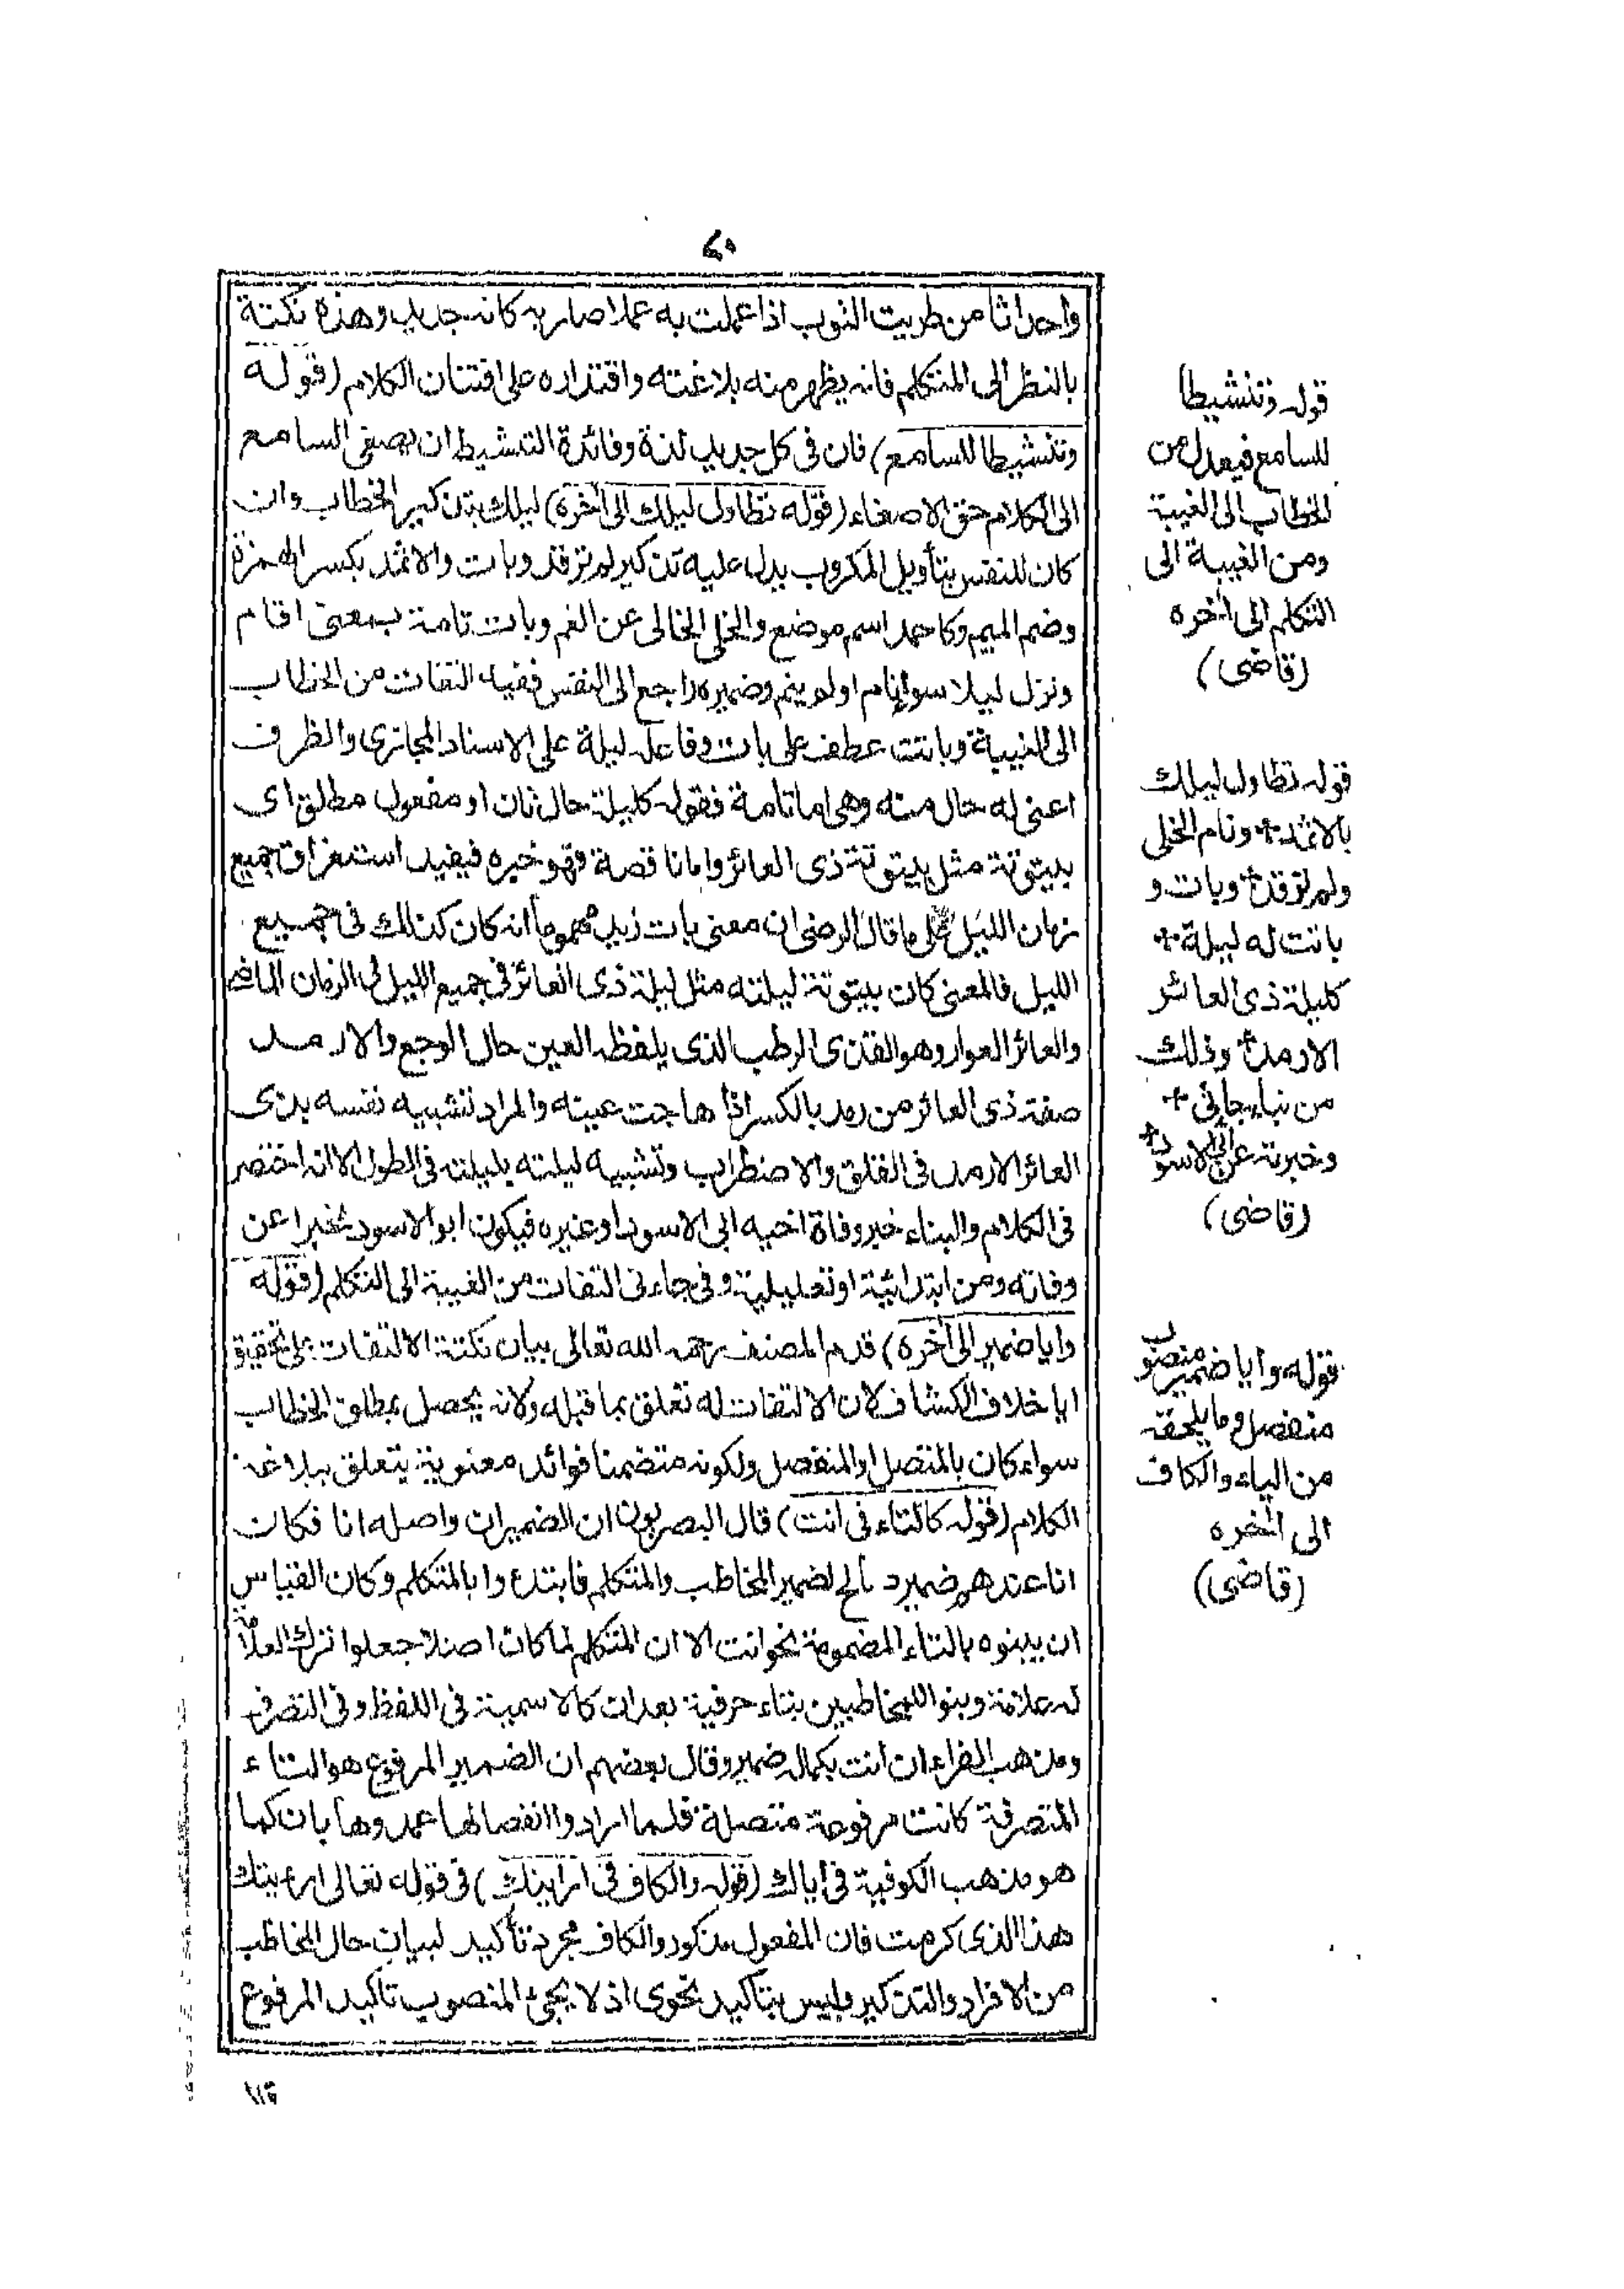 واحداثا من طريت الثوب اذا عملت به عملا صار به كانه جديد وهذه نكتة
بالنظر الى المتكلم فانه يظهر منه بلاغته واقتداره على افتنان الكلام (قوله
وتنشيطا للسامع) فان فى كل جديد لذة وفائدة التنشيط ان يصغى السامع
الى الكلام حق الاصغاء (قوله تطاول ليلك الى أخره) ليلك بتذكير الخطاب وان
كان للنفس بتأويل المكروب يدل عليه تذكير لم ترقد وبات والاثمد بكسر الهمزة
وضم الميم وكاحمد اسم موضع والخلى الخالى عن الغم وبات تامة بمعنى اقام
ونزل ليلا سواء نام اولم ينم وضميره راجع الى النفس ففيه التفات من الخطاب
الى الغيبة وباتت عطف على بات وفاعله ليلة على الاسناد المجازى والظرف
اعنى له حال منه وهى اما تامة فقوله كليلة حال ثان او مفعول مطلق اى
بيتوتة مثل بيتوتة ذى العائر واما ناقصة فهو خبره فيفيد استغراق جميع
زمان الليل على ما قال الرضى ان معنى بات زيد مهموما أنه كان كذلك فى جميع
الليل فالمعنى كان بيتوتة ليلته مثل ليلة ذى العائر فى جميع الليل فى الزمان الماضى
والعائر العوار وهو القذى الرطب الذى يلفظه العين حال الوجع والارمد
صفة ذى العائر من رمد بالكسر اذا هاجت عينه والمراد تشبيه نفسه بذى
العائر الارمد فى القلق والاضطراب وتشبيه ليلته بليلته فى الطول الا انه اختصر
فى الكلام والنباء خبر وفاة اخيه ابى الاسود او غيره فيكون ابو الاسود مخبرا عن
وفاته ومن ابتدائية او تعليلية وفى جاءنى التفات من الغيبة الى التكلم (قوله
وايا ضمير الى أخره) قدم المصنف رحمه الله تعالى بيان نكتة الالتفات على تحقيق
ايا خلاف الكشاف لان الالتفات له تعلق بما قبله ولانه يحصل بمطلق الخطاب
سواء كان بالمتصل او المنفصل ولكونه متضمنا فوائد معنوية يتعلق ببلاغة
الكلام (قوله كالتاء فى انت) قال البصريون ان الضمير ان واصله انا فكان
انا عندهم ضمير صالح لضمير المخاطب والمتكلم فابتدءوا بالمتكلم وكان القياس
ان يبينوه بالتاء المضمومة نحو انت الا ان المتكلم لما كان اصلا جعلوا ترك العلامة
له علامة وبينوا للمخاطبين بتاء حرفية بعد ان كالاسمية فى اللفظ وفى التصرف
ومذهب الفراء ان انت بكماله ضمير وقال بعضهم ان الضمير المرفوع هو التاء
المتصرفة كانت مرفوعة متصلة فلما ارادوا انفصالها عمدوها بان كما
هو مذهب الكوفية فى اياك (قوله والكاف فى ارايتك) فى قوله تعالى ارءيتك
هذا الذى كرمت فان المفعول مذكور والكاف مجرد تأكيد لبيان حال المخاطب
من الافراد والتذكير وليس بتاكيد نحوى اذ لا يجئ المنصوب تاكيد المرفوع
قوله وتنشيطا
للسامع فيعدل من
الخطاب الى الغيبة
ومن الغيبة الى
التكلم الى أخره
(قاضى)
قوله تطاول ليلك
بالاثمد + ونام الخلى
ولم ترقد + وبات و
باتت له ليلة +
كليلة ذى العائر
الارمد + وذلك
من نباء جاءنى +
وخبرته عن ابى الاسود +
(قاضى)
قوله وايا ضمير منصوب
منفصل وما يلحقه
من الياء والكاف
الى أخره
(قاضى)